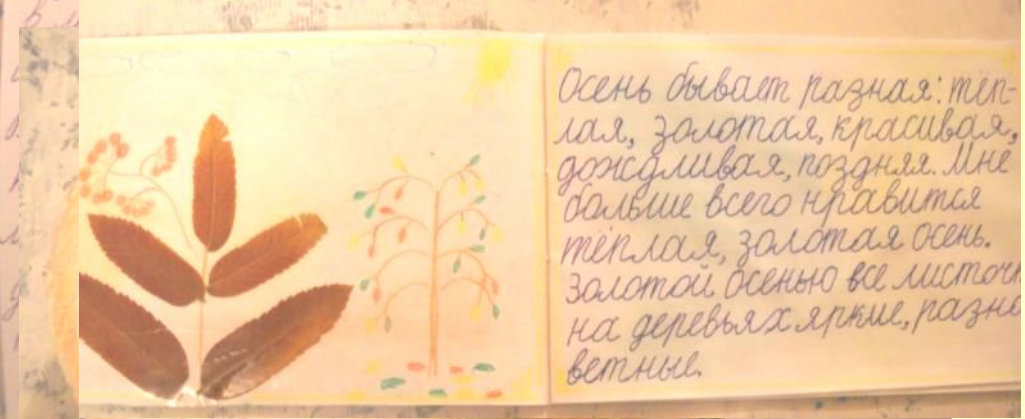 Осень бывает разная: тёп-
лая, золотая, красивая,
дождливая, поздняя. Мне
больше всего нравится
тёплая, золотая осень.
Золотой осенью все листочк
на деревьях яркие, разно
ветные.